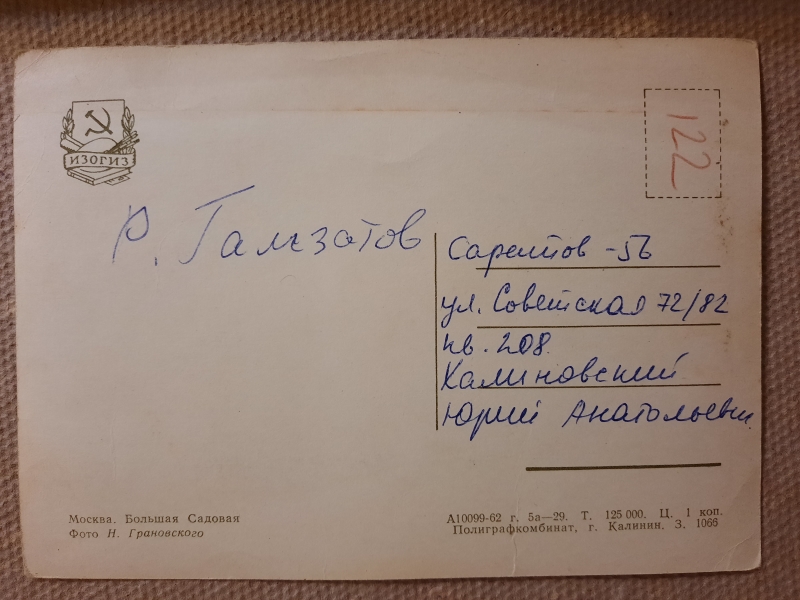 ИЗОГИЗ
122
Р. Гамзатов
Саратов - 56
ул. Советская 72/82
кв. 208
Калиновский
Юрий Анатольевич
Москва. Большая Садовая
Фото Н. Грановского
А10099-62 г. 5а—29. Т. 125 000. Ц. 1 коп.
Полиграфкомбинат, г. Калинин. З. 1066